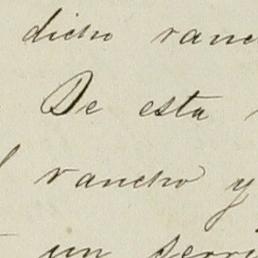 dicho ranc
De esta
rancho y
un